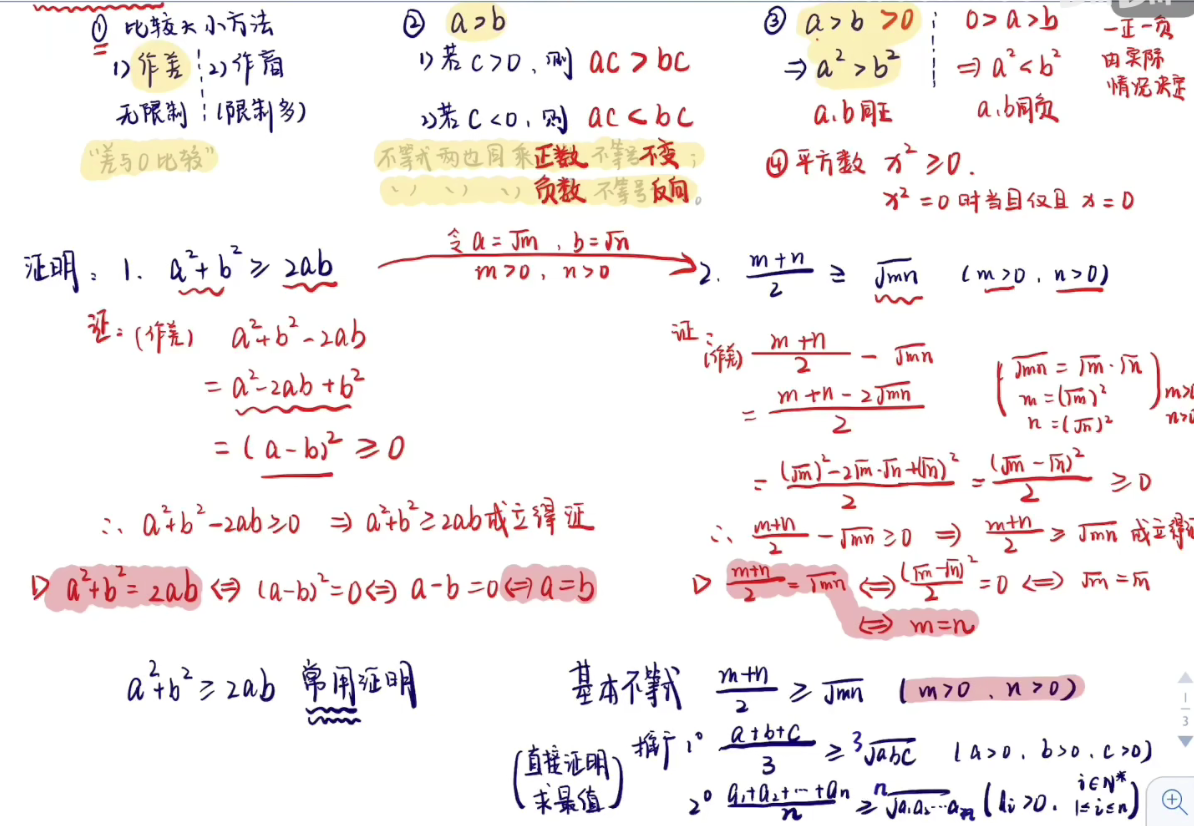 ① 比较大小方法
1) 作差 2) 作商
无限制 (限制多)
"差与0比较"
② a>b
1) 若 c>0，则 ac>bc
2) 若 c<0，则 ac<bc
不等式两边同乘正数 不等号不变；
〃 〃 〃 负数 不等号反向。
③ a>b>0
⇒ a²>b²
a、b同正
0>a>b
⇒ a²<b²
a、b同负
一正一负
由实际
情况决定
④ 平方数 x²≥0.
x²=0时当且仅且 x=0
证明：1. a²+b²≥2ab
令 a=√m，b=√n
m>0，n>0
2. (m+n)/2 ≥ √mn (m>0，n>0)
证：(作差) a²+b²-2ab
= a²-2ab+b²
= (a-b)² ≥0
∴ a²+b²-2ab≥0 ⇒ a²+b²≥2ab成立得证
▷ a²+b²=2ab ⇔ (a-b)²=0 ⇔ a-b=0 ⇔ a=b
证：(作差) (m+n)/2 - √mn
= (m+n-2√mn)/2
√mn=√m·√n
m=(√m)²
n=(√n)²
m>0
n>0
= ((√m)²-2√m·√n+(√n)²)/2 = (√m-√n)²/2 ≥0
∴ (m+n)/2 - √mn ≥0 ⇒ (m+n)/2 ≥ √mn 成立得证
▷ (m+n)/2 = √mn ⇔ (√m-√n)²/2 =0 ⇔ √m=√n
⇔ m=n
a²+b²≥2ab 常用证明
基本不等式 (m+n)/2 ≥ √mn (m>0、n>0)
(直接证明
求最值)
推广 1° (a+b+c)/3 ≥ ³√abc (a>0，b>0，c>0)
2° (a₁+a₂+…+aₙ)/n ≥ ⁿ√a₁a₂…aₙ (aᵢ>0，i∈N* 1≤i≤n)
1
3